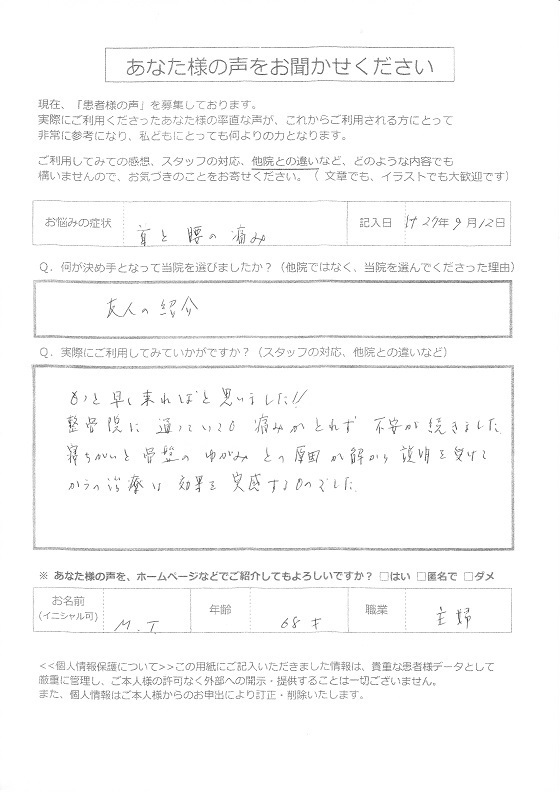 あなた様の声をお聞かせください
現在、「患者様の声」を募集しております。
実際にご利用くださったあなた様の率直な声が、これからご利用される方にとって
非常に参考になり、私どもにとっても何よりの力となります。
ご利用してみての感想、スタッフの対応、他院との違いなど、どのような内容でも
構いませんので、お気づきのことをお寄せください。（ 文章でも、イラストでも大歓迎です）
お悩みの症状 首と腰の痛み 記入日 H27年9月12日
Q．何が決め手となって当院を選びましたか？（他院ではなく、当院を選んでくださった理由）
友人の紹介
Q．実際にご利用してみていかがですか？（スタッフの対応、他院との違いなど）
もっと早く来ればと思いました!!
整骨院に通っていても痛みがとれず 不安が続きました
寝ちがいと骨盤のゆがみとの原因が解かり説明を受けて
からの治療は効果を実感するものでした
※ あなた様の声を、ホームページなどでご紹介してもよろしいですか？ □はい □匿名で □ダメ
お名前 (イニシャル可) M.T. 年齢 68才 職業 主婦
<<個人情報保護について>>この用紙にご記入いただきました情報は、貴重な患者様データとして
厳重に管理し、ご本人様の許可なく外部への開示・提供することは一切ございません。
また、個人情報はご本人様からのお申出により訂正・削除いたします。